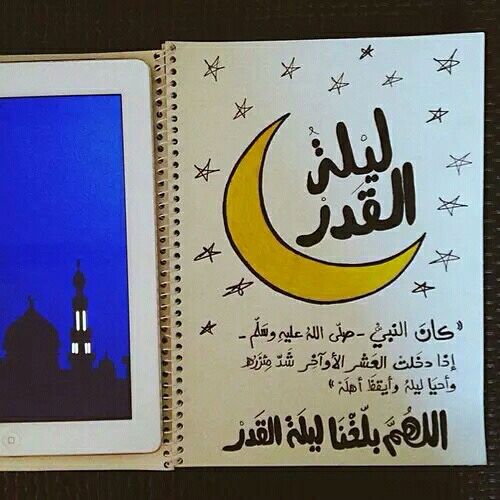 ليْلةُ
القَدرْ
« كان النبيُّ - صلّى اللهُ عليهِ وسَلّم -
إذا دخَلتْ العَشر الأوآخر شَدّ مِئزرهُ
وأحيَا ليلهُ وأيقظَ أهلَهُ »
اللهُمَّ بلّغْنَا ليلَة القَدَرْ